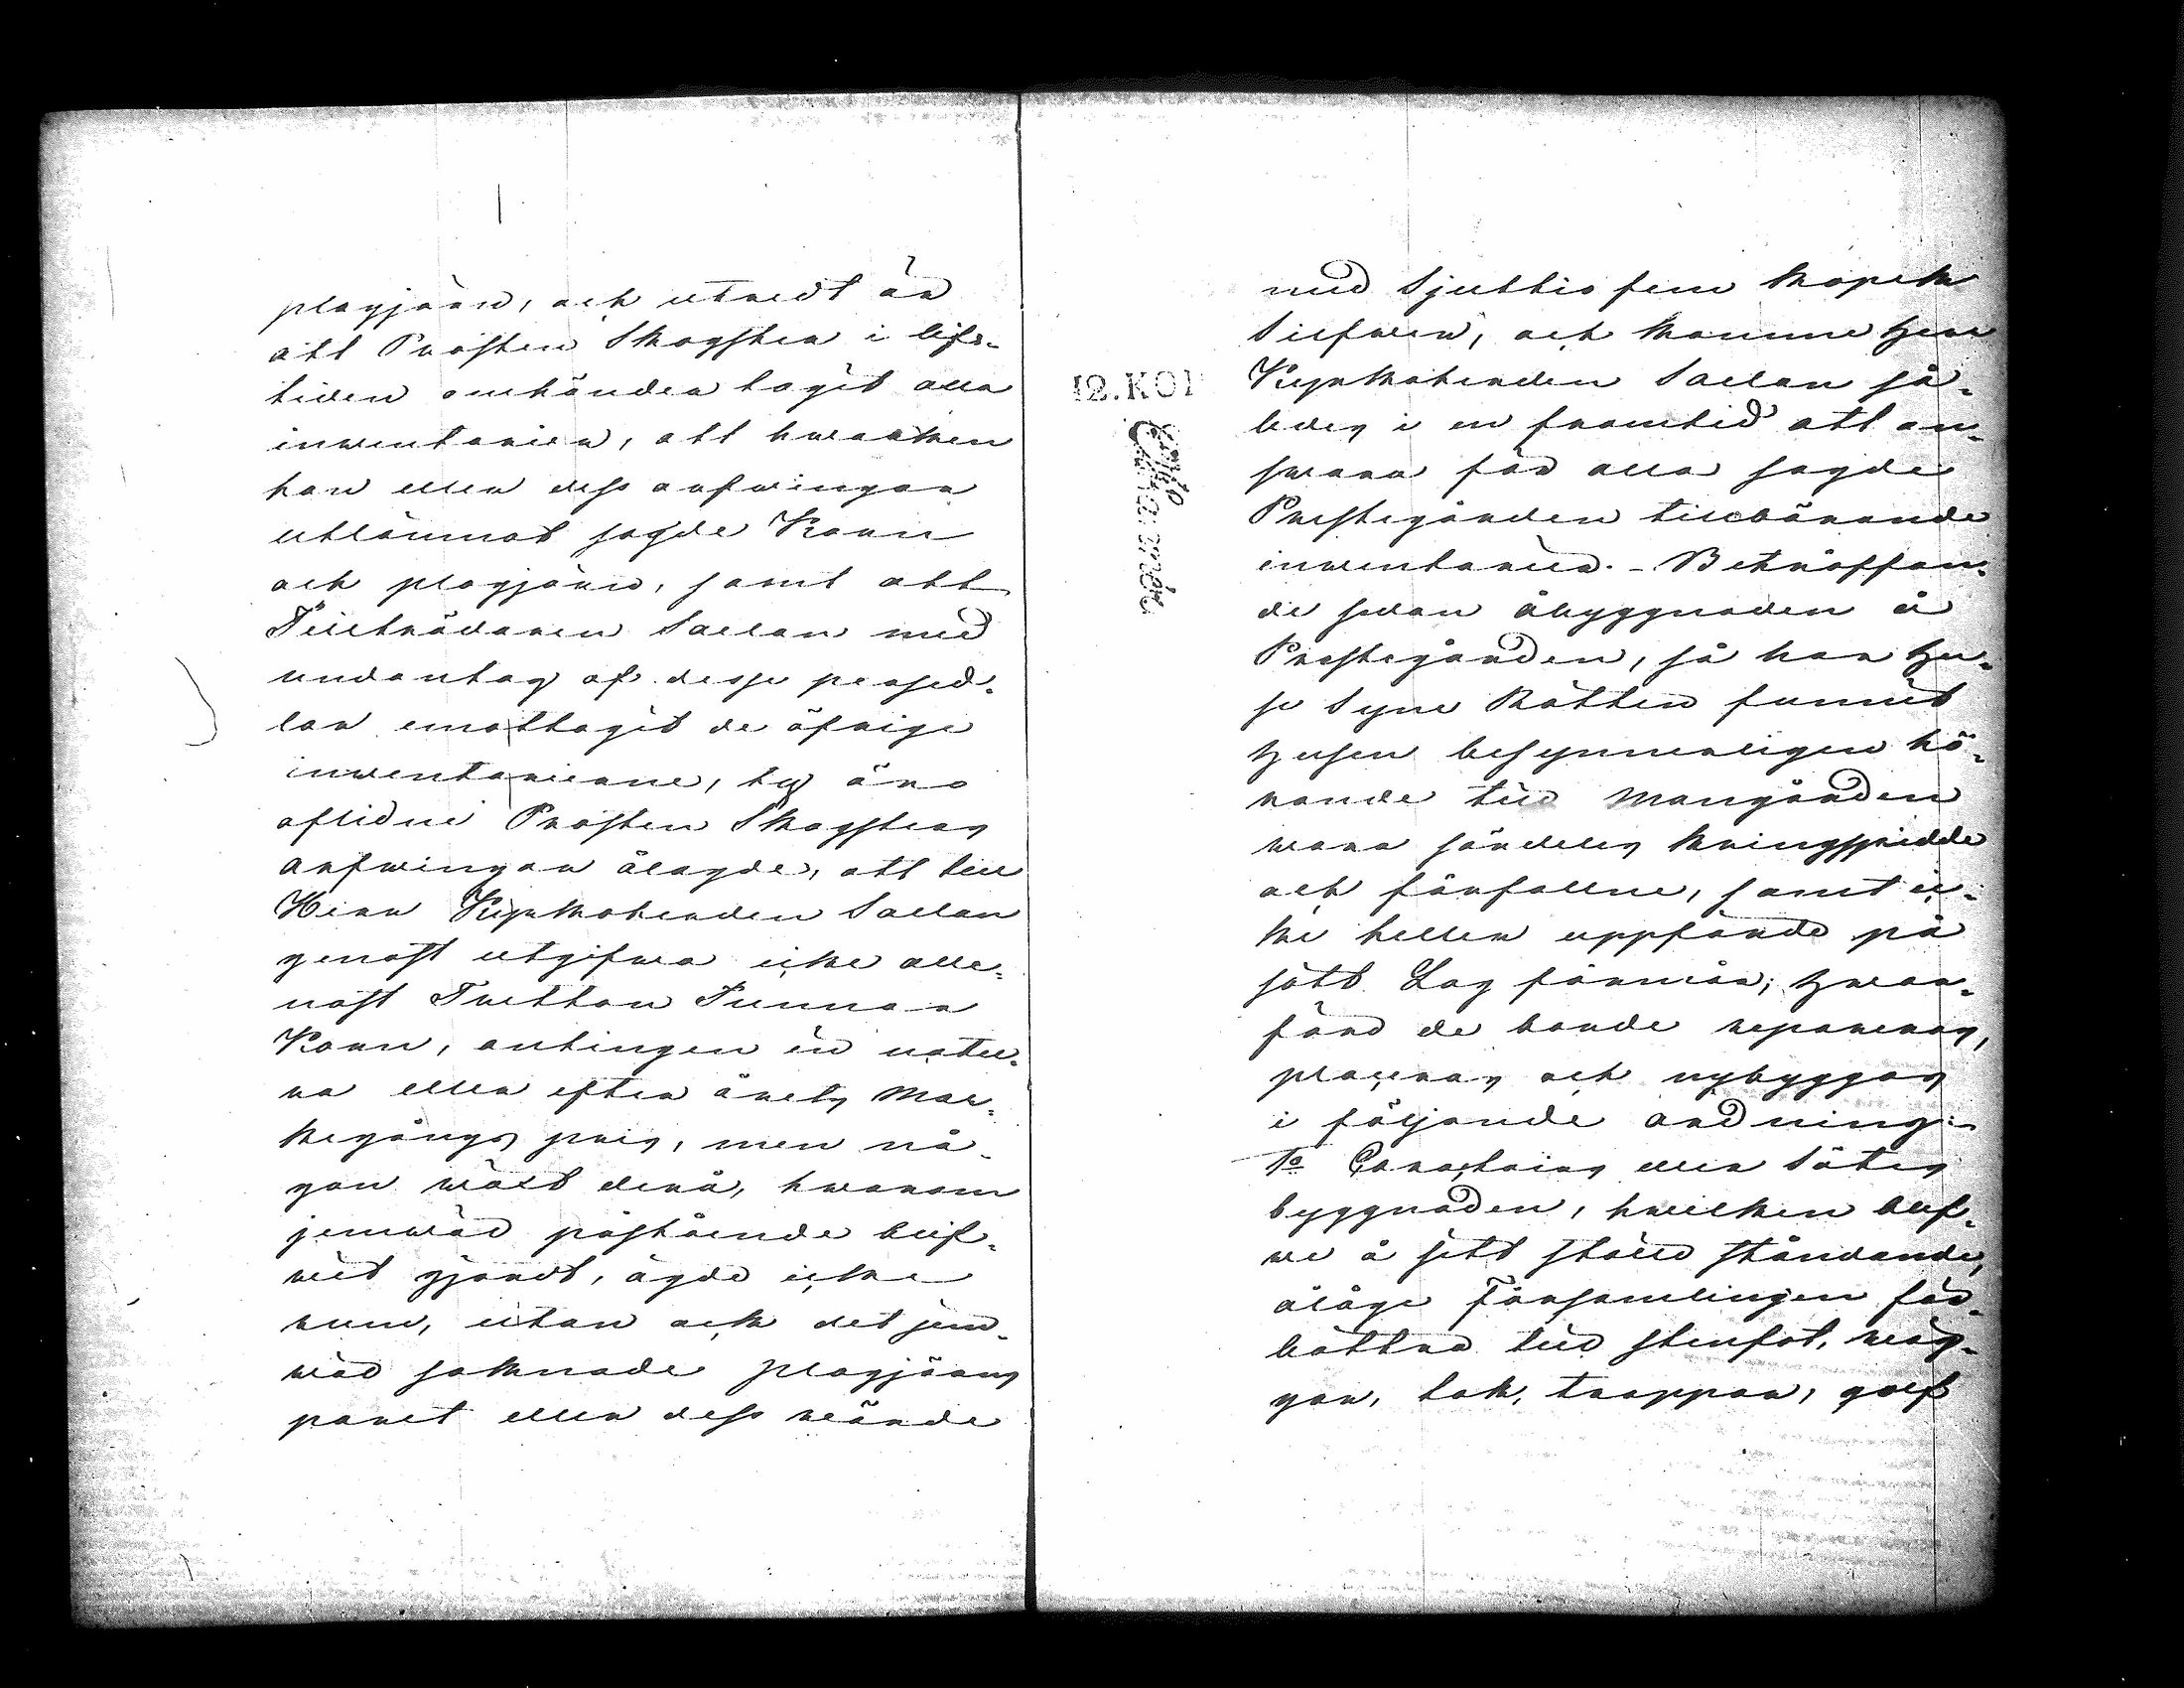 plogjärn, och utredt är
att Prosten Skogster i lifs-
tiden omhänder tagit alla
inventarier, att hwarken
han eller dess arfwingar
utlämnat sagde Korn
och plogjärn, samt att
Tillträdaren Sacklan med
undantag af desse persed-
lar emottagit de öfrige
inventarierne, ty äro
aflidne Prosten Skogsters
arfwingar ålagde, att till
Herr Kyrkoherden
genast utgifwa icke alle-
nast Tretton Tunnor
Korn, antingen in natu-
ra eller efter årets Mar-
kegångs pris, men nå-
gon wäxt derå, hwarom
jemwäl påstående blif-
wit gjordt, ägde icke
rum, utan ock det jem-
wäl saknade plogjärns
paret eller dess wärde
med Sjuttio fem kopek
Silfwer, och komme Herr
Kyrkoherden så-
ledes i en framtid att an-
swara för alla sagde
Prestegården tillhörande
inventarier. - Beträffan-
de sedan åbyggnaden å
Prestegården, så har Hu-
se Syne Rätten funnit
Husen besynnerligen hö-
rande till Mangården
wara särdeles kringspridde
och förfallne, samt ic-
ke heller uppförde på
sätt Lag förmår; Hwar-
före de borde repareras,
placeras och nybyggas
i följande ordning:
1o Caracters eller Sätes
byggnaden, hwilken blef-
we å sitt ställe ståndande,
ålåge Församlingen för-
bättra till stenfot, wäg-
gar, tak, trappor, golf
12. KOP